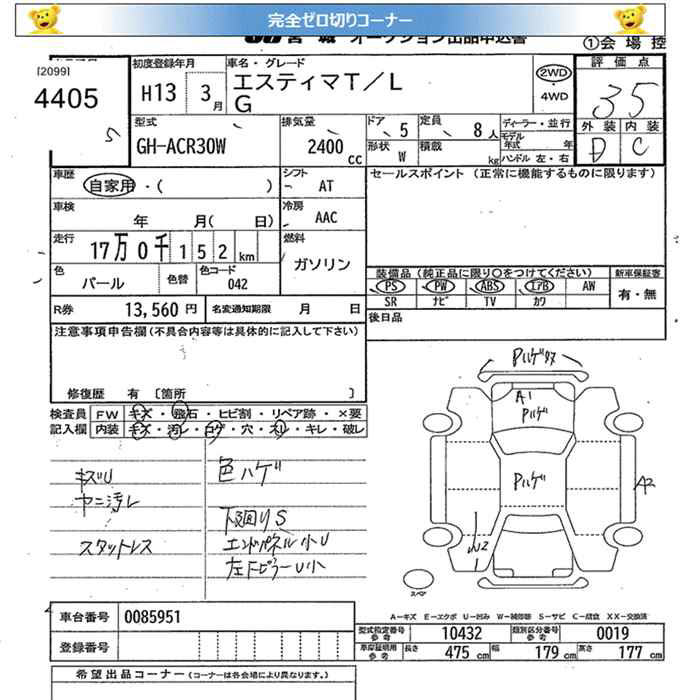 完全ゼロ切りコーナー
宮城 オークション出品申込書
①会場控
[2099]
4405
5
初度登録年月
H13 3月
車名・グレード
エスティマT/L
G
2WD
4WD
評価点
3.5
外装 内装
D C
型式
GH-ACR30W
排気量
2400 cc
ドア 5
定員 8人
形状 W
積載 kg
ディーラー・並行
モデル年式 年
ハンドル 左・右
車歴
自家用・( )
シフト AT
セールスポイント (正常に機能するものに限ります)
車検
年 月( 日)
冷房 AAC
走行
17万0千152km
燃料
ガソリン
色
パール
色替
色コード
042
装備品 (純正品に限り○をつけてください)
PS PW ABS エアB AW
SR ナビ TV カワ
新車保証書
有・無
R券 13,560 円
名変通知期限 月 日
後日品
注意事項申告欄(不具合内容等は具体的に記入して下さい)
修復歴 有 [箇所 ]
検査員
記入欄
FW キズ・飛石・ヒビ割・リペア跡・×要
内装 キズ・汚レ・コゲ・穴・スリ・キレ・破レ
キズU
ヤニ汚レ
スタットレス
色ハゲ
下廻りS
エンドパネル小U
左FピラーU小
Pハゲ
A1
Pハゲ
Pハゲ
A2
W2
スペア
A-キズ E-エクボ U-凹み W-補修跡 S-サビ C-腐食 XX-交換済
車台番号 0085951
登録番号
型式指定番号
参考
10432
類別区分番号
参考
0019
車庫証明用
参考
長さ 475 cm 幅 179 cm 高さ 177 cm
希望出品コーナー (コーナーは各会場により異なります。)